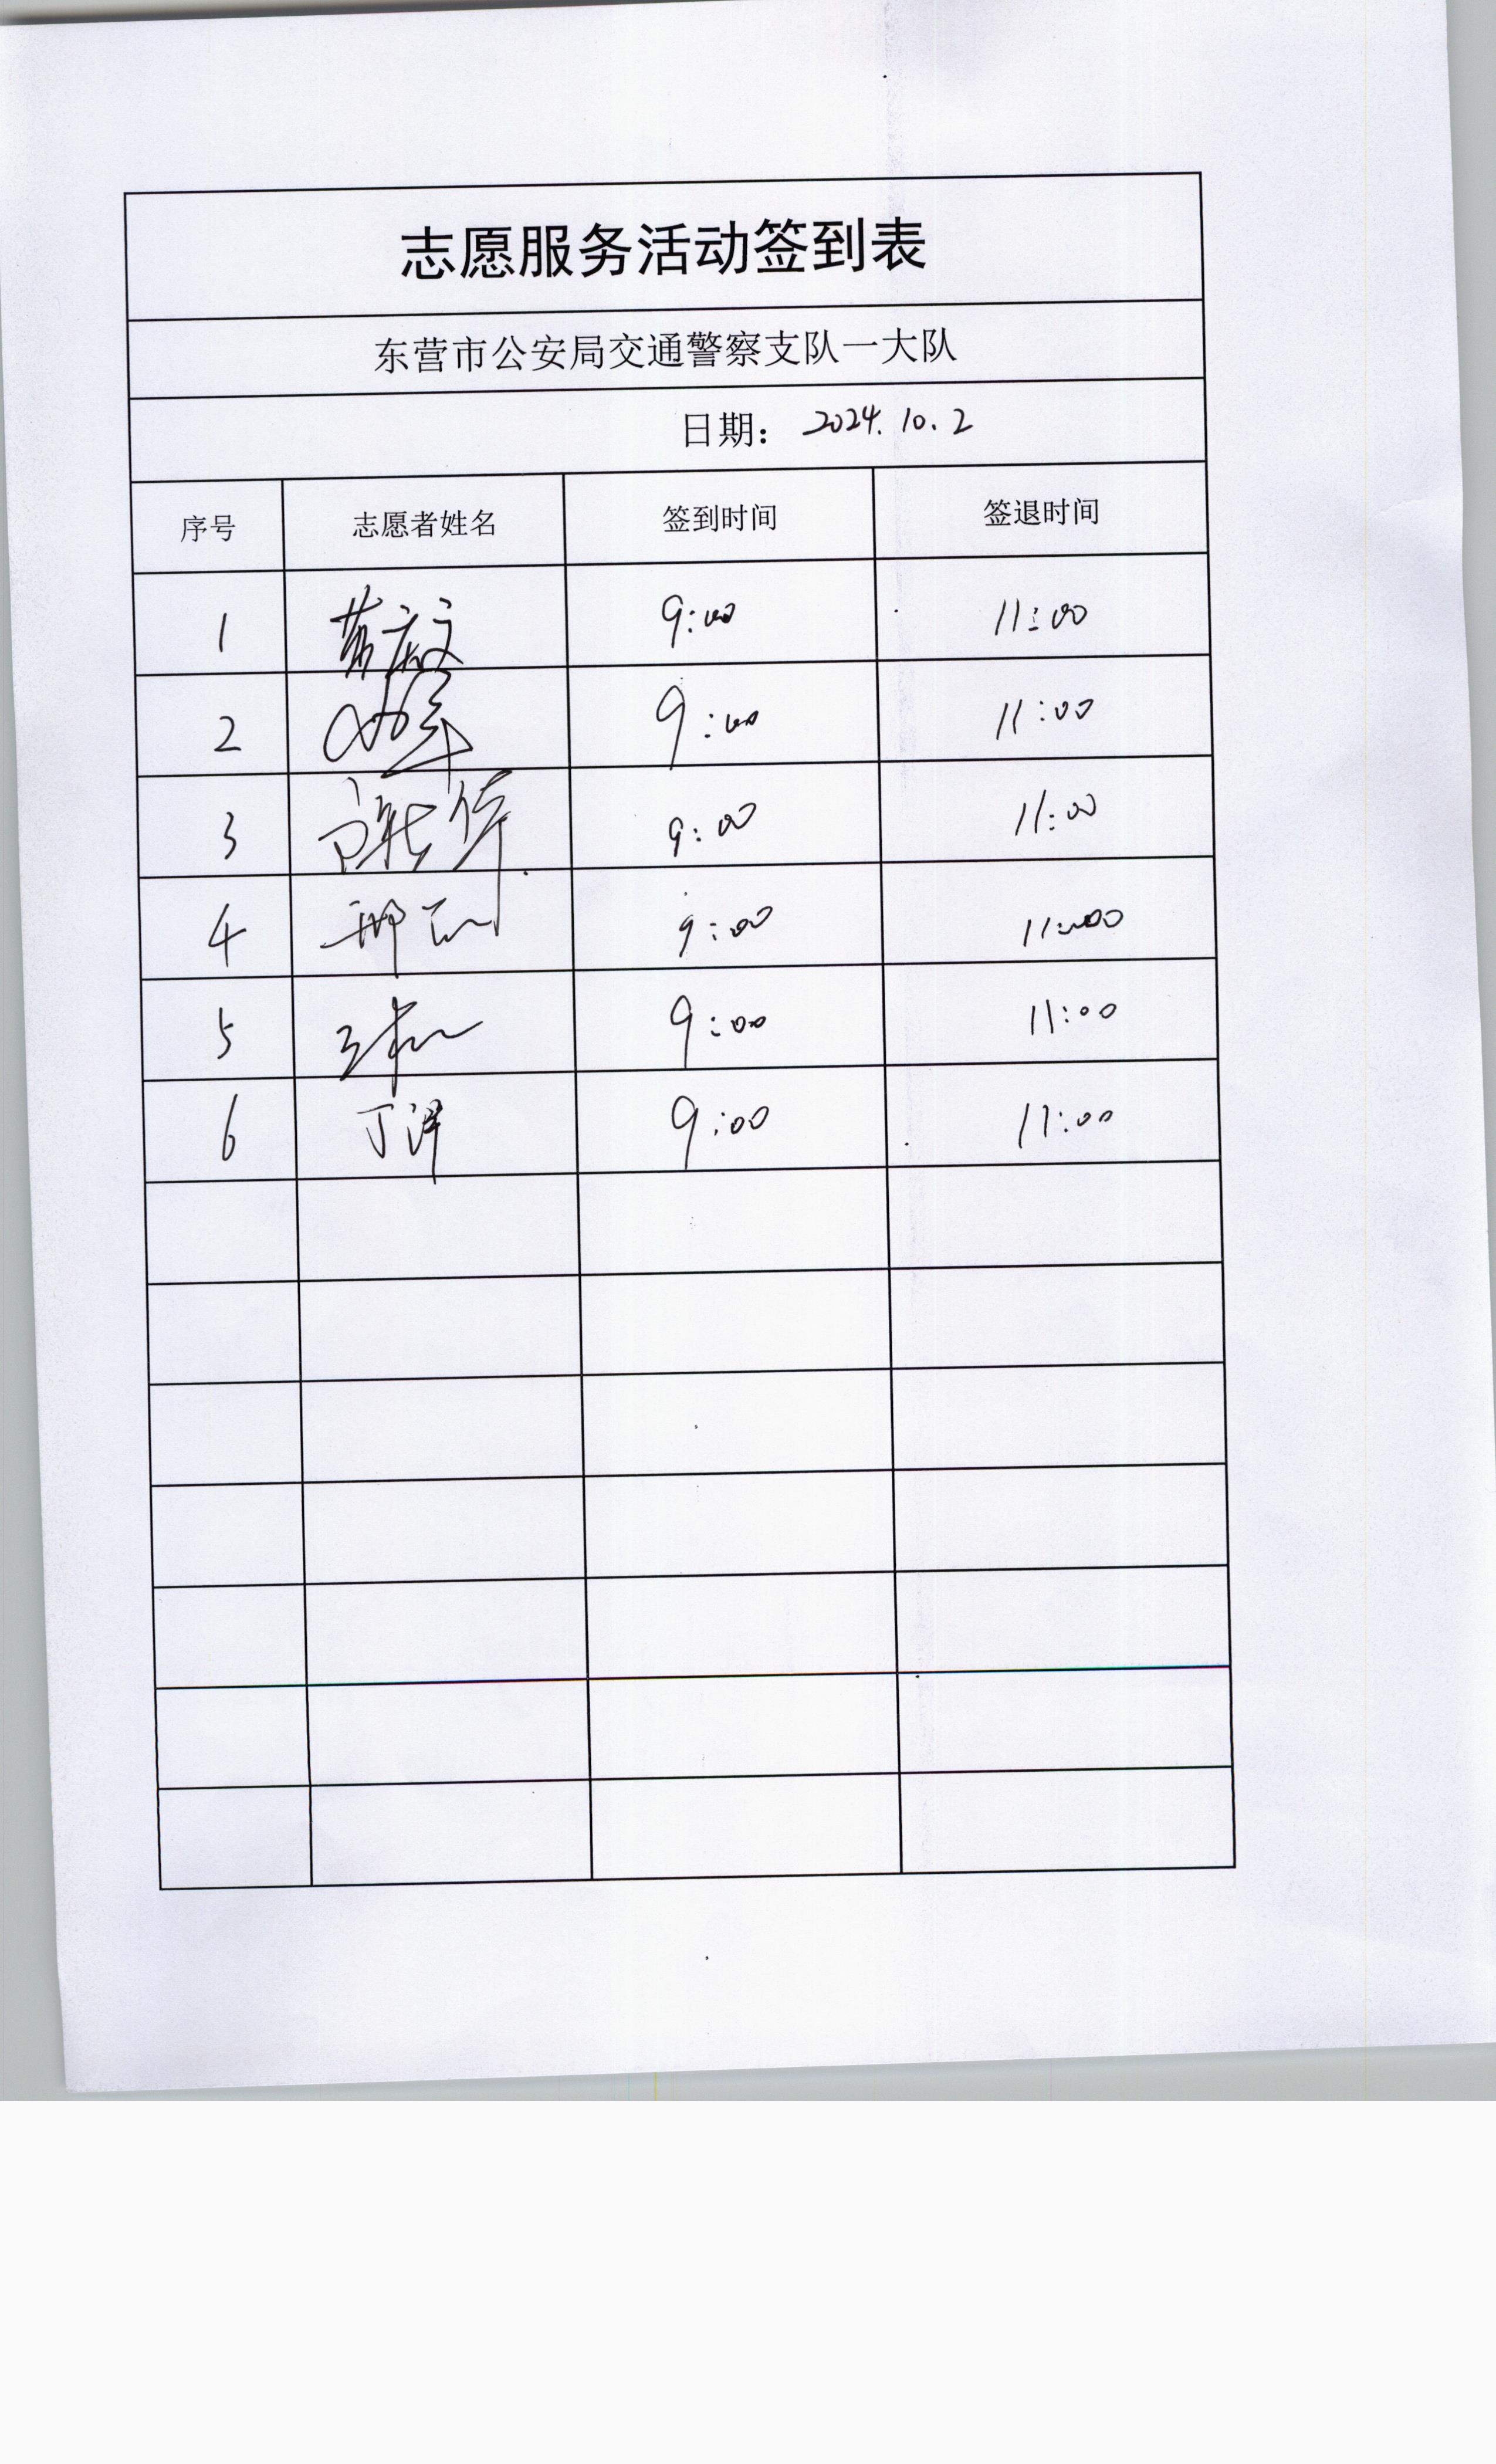 志愿服务活动签到表
东营市公安局交通警察支队一大队
日期： 2024.10.2
序号 志愿者姓名 签到时间 签退时间
1 9:00 11:00
2 9:00 11:00
3 9:00 11:00
4 9:00 11:00
5 9:00 11:00
6 丁泽 9:00 11:00